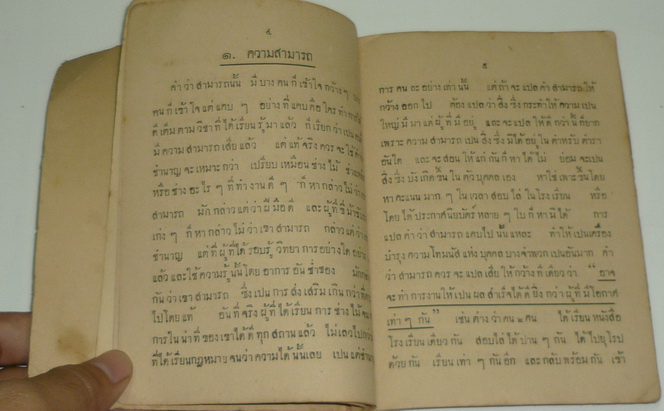 ๔
๑. ความสามารถ
คำว่าสามารถนั้น มีบางคนก็เข้าใจกว้างๆ
คนก็เข้าใจแต่แคบๆ อย่างที่แคบคือใครทำการ
ดีเต็มตามวิชาที่ได้เรียนรู้มาแล้ว ก็เรียกว่าเป็น
มีความสามารถเสียแล้ว แต่แท้จริงควรจะใช้
ชำนาญจะเหมาะกว่า เปรียบเหมือนช่างไม้
หรือช่างอะไรๆที่ทำงานดีๆ ก็หากล่าวไม่ว่า
สามารถ มักกล่าวแต่ว่าฝีมือดี และผู้ที่
เก่งๆ ก็หากล่าวไม่ว่าเขาสามารถ กล่าวแต่ว่า
ชำนาญ แต่ที่ผู้ที่ได้รอบรู้วิทยาการอย่างใดอย่าง
แล้วและใช้ความรู้นั้นโดยอาการอันช่ำชอง มัก
กันว่าเขาสามารถ ซึ่งเปนการส่งเสริมเกินกว่าที่
ไปโดยแท้ อันที่จริงผู้ที่ได้เรียนการช่างไม้
การในน่าที่ของเขาได้ดีทุกสถานแล้ว ไม่เลว
ที่ได้เรียนกฎหมายจนว่าความได้นั้นเลย เปนแต่ชำนาญ
๕
การคนละอย่างเท่านั้น แต่ถ้าจะแปลคำสามารถให้
กว้างออกไป ต้องแปลว่าสิ่งซึ่งกระทำให้ความเปน
ใหญ่มีมาแต่ผู้ที่มีอยู่ และจะแปลให้ดีกว่านั้นก็ยาก
เพราะความสามารถเปนสิ่งซึ่งมิได้อยู่ในตำหรับตำรา
อันใด และจะสอนให้แก่กันก็หาได้ไม่ ย่อมจะเปน
สิ่งซึ่งบังเกิดขึ้นในตัวบุคคลเอง หาใช่เพราะขึ้นโดย
หาคะแนนมากๆในเวลาสอบไล่ในโรงเรียน หรือ
โดยได้ประกาศนียบัตร์หลายๆใบก็หามิได้ การ
แปลคำว่าสามารถแคบไปนั้นแหละ ทำให้เปนเครื่อง
บำรุงความโทมนัสแห่งบุคคลบางจำพวกเปนอันมาก คำ
ว่าสามารถควรจะแปลเสียให้กว้างทีเดียวว่า "อาจ
จะทำการงานให้เปนผลสำเร็จได้ดียิ่งกว่าผู้ที่มีโอกาศ
เท่าๆกัน" เช่นต่างว่าคน๒คน ได้เรียนหนังสือ
โรงเรียนเดียวกัน สอบไล่ได้ปานๆกัน ได้ไปยุโรป
ด้วยกัน เรียนเท่าๆกันอีก และกลับพร้อมกัน เข้า